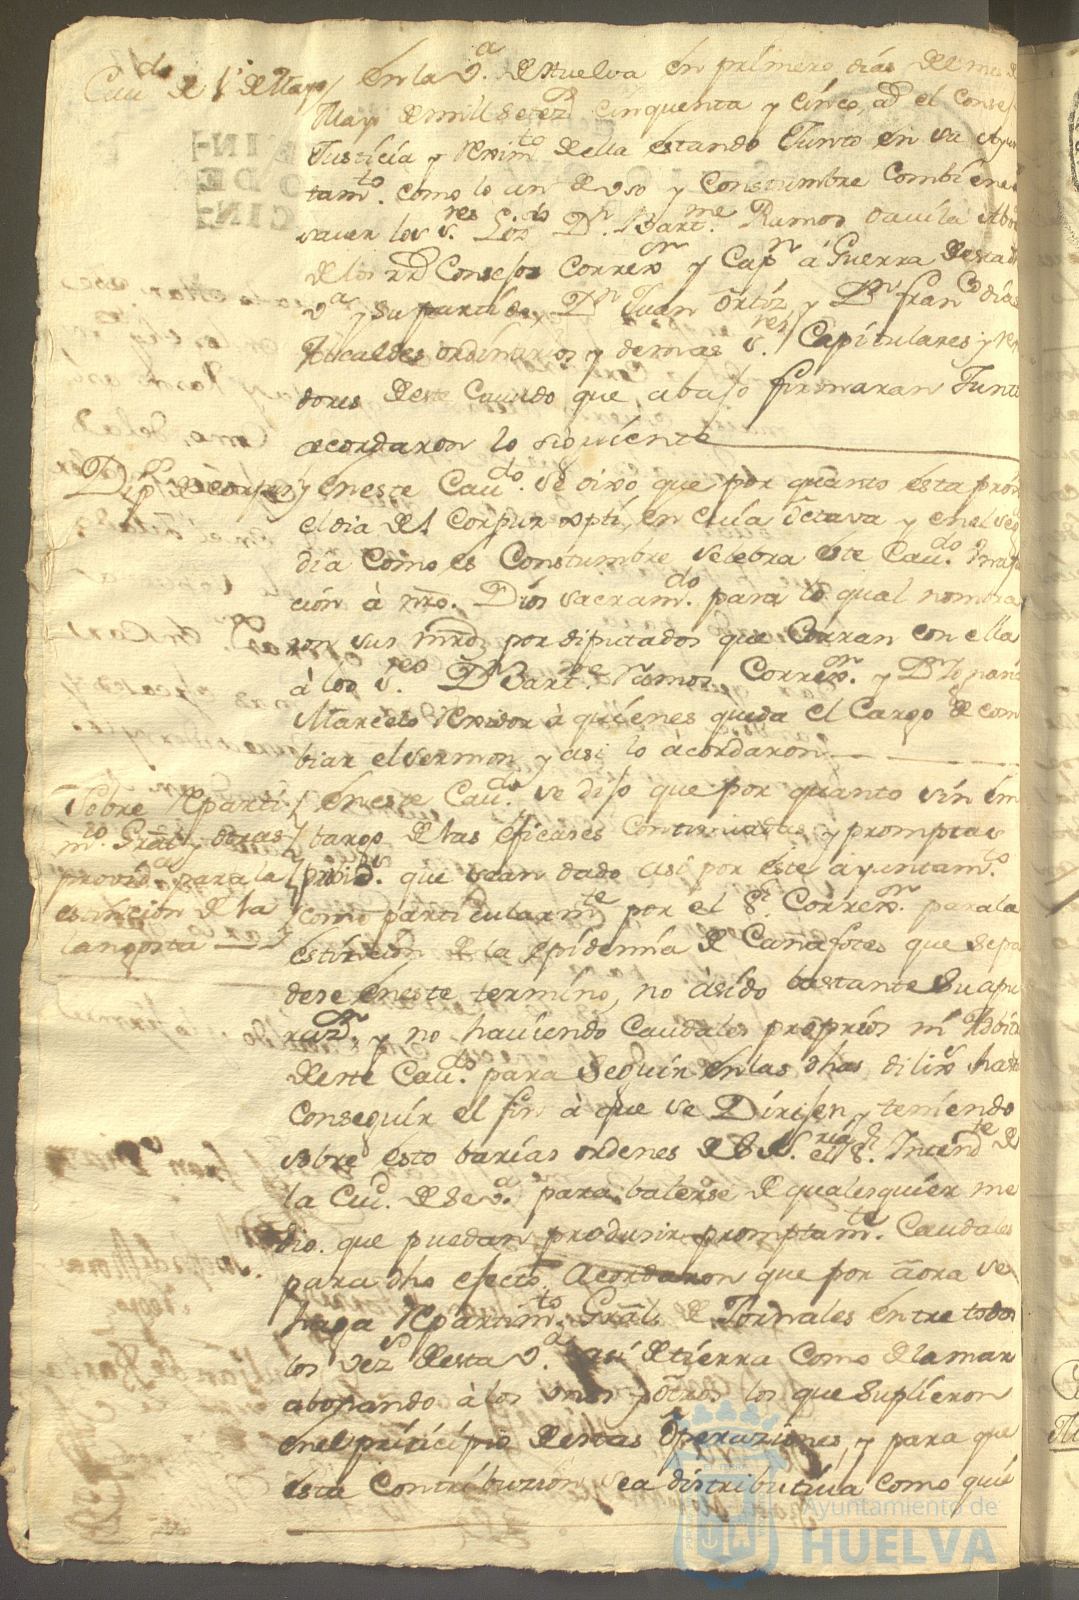 Cav.do de 1.º de Mayo / En la v.ª de Huelva en primero dias del mes de
Mayo de mill setez.s cinquenta y cinco, ad el Consejo
Justicia y Rexim.to de ella estando Junto en su Ayun
tam.to como lo an de uso y Constumbre combiene
saver los s.res Liz.do D.n Bart.me Ramos Davila Abo
de los RR Consejos Correx.or y Cap.n á Guerra de esta
v.ª y su partido, D.n Juan Ortiz y D.n fran.co dias
Alcaldes ordinarios y demas s.res Capitulares y re
dores de este Cavildo que abajo firmaran Junto
acordaron lo siguiente
Dip.s de Corpus / En este Cav.do se dixo que por quanto esta prox
el dia del Corpus xpti, en cuia Octava y en el seg
dia como es Constumbre selebra este Cav.do
cion à nro. Dios sacram.do para lo qual nombra
ron sus mrds por diputados que Corran con ella
à los s.res D.n Bart.me Ramos Correx.or y D.n Ygnasi
Marcelo Rexidor à quienes queda el Cargo de com
biar el sermon y asi lo acordaron
Sobre Reparti
m.to Gral y otras
provid.s para la
estincion de la
langosta
En este Cav.do se dijo que por quanto sin em
bargo de las eficases continuadas y promptas
provid.s que sean dado asi por este ayuntam.to
como particularm.te por el S.r Correx.or para la
estincion de la epidemia de Cañafotes que se pa
dese en este termino, no á sido bastante su apu
raz.on y no haviendo Caudales proprios ni Adbitr
de este Cav.do para seguir en las dhas dilix.s hasta
conseguir el fin à que se Dirijen y teniendo
sobre esto barias ordenes de S.ria el S.r Intend.te de
la Ciud. de Se.ª para balerse de qualesquier me
dio que puedan produsir promptam.te Caudales
para dho efecto. Acordaron que por aora se
haga Repartim.to Gral de Jornales entre todos
los vez.s de esta v.ª asi de tierra como de la mar
abonando à los unos y otros los que suplieron
en el principio de estas Operaziones, y para que
esta Contribuzion sea distributiva como que
Ayuntamiento de
HUELVA